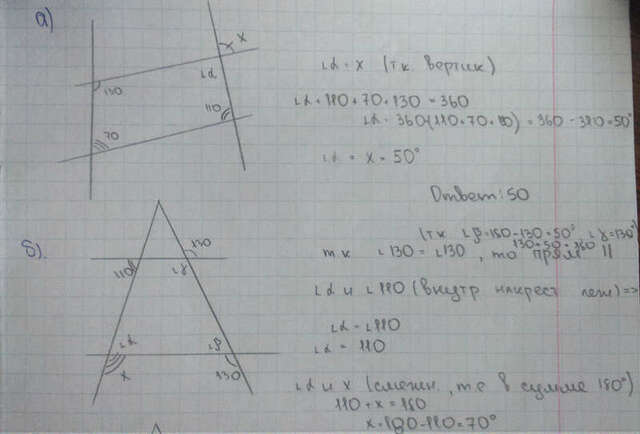 а)
x
∠α
130
110
70
∠α = x (т.к. вертик)
∠α + 110 + 70 + 130 = 360
∠α = 360-(110+70+130) = 360 - 310 = 50°
∠α = x = 50°
Ответ: 50
б).
130
110
∠γ
∠α
∠β
x
130
(т.к. ∠β=180-130=50°, ∠γ=130°)
130+50=180
т.к ∠130 = ∠130, то прямые ||
∠α и ∠110 (внутр накрест леж) =>
∠α = ∠110
∠α = 110
∠α и x (смежн, т.е в сумме 180°)
110 + x = 180
x = 180 - 110 = 70°